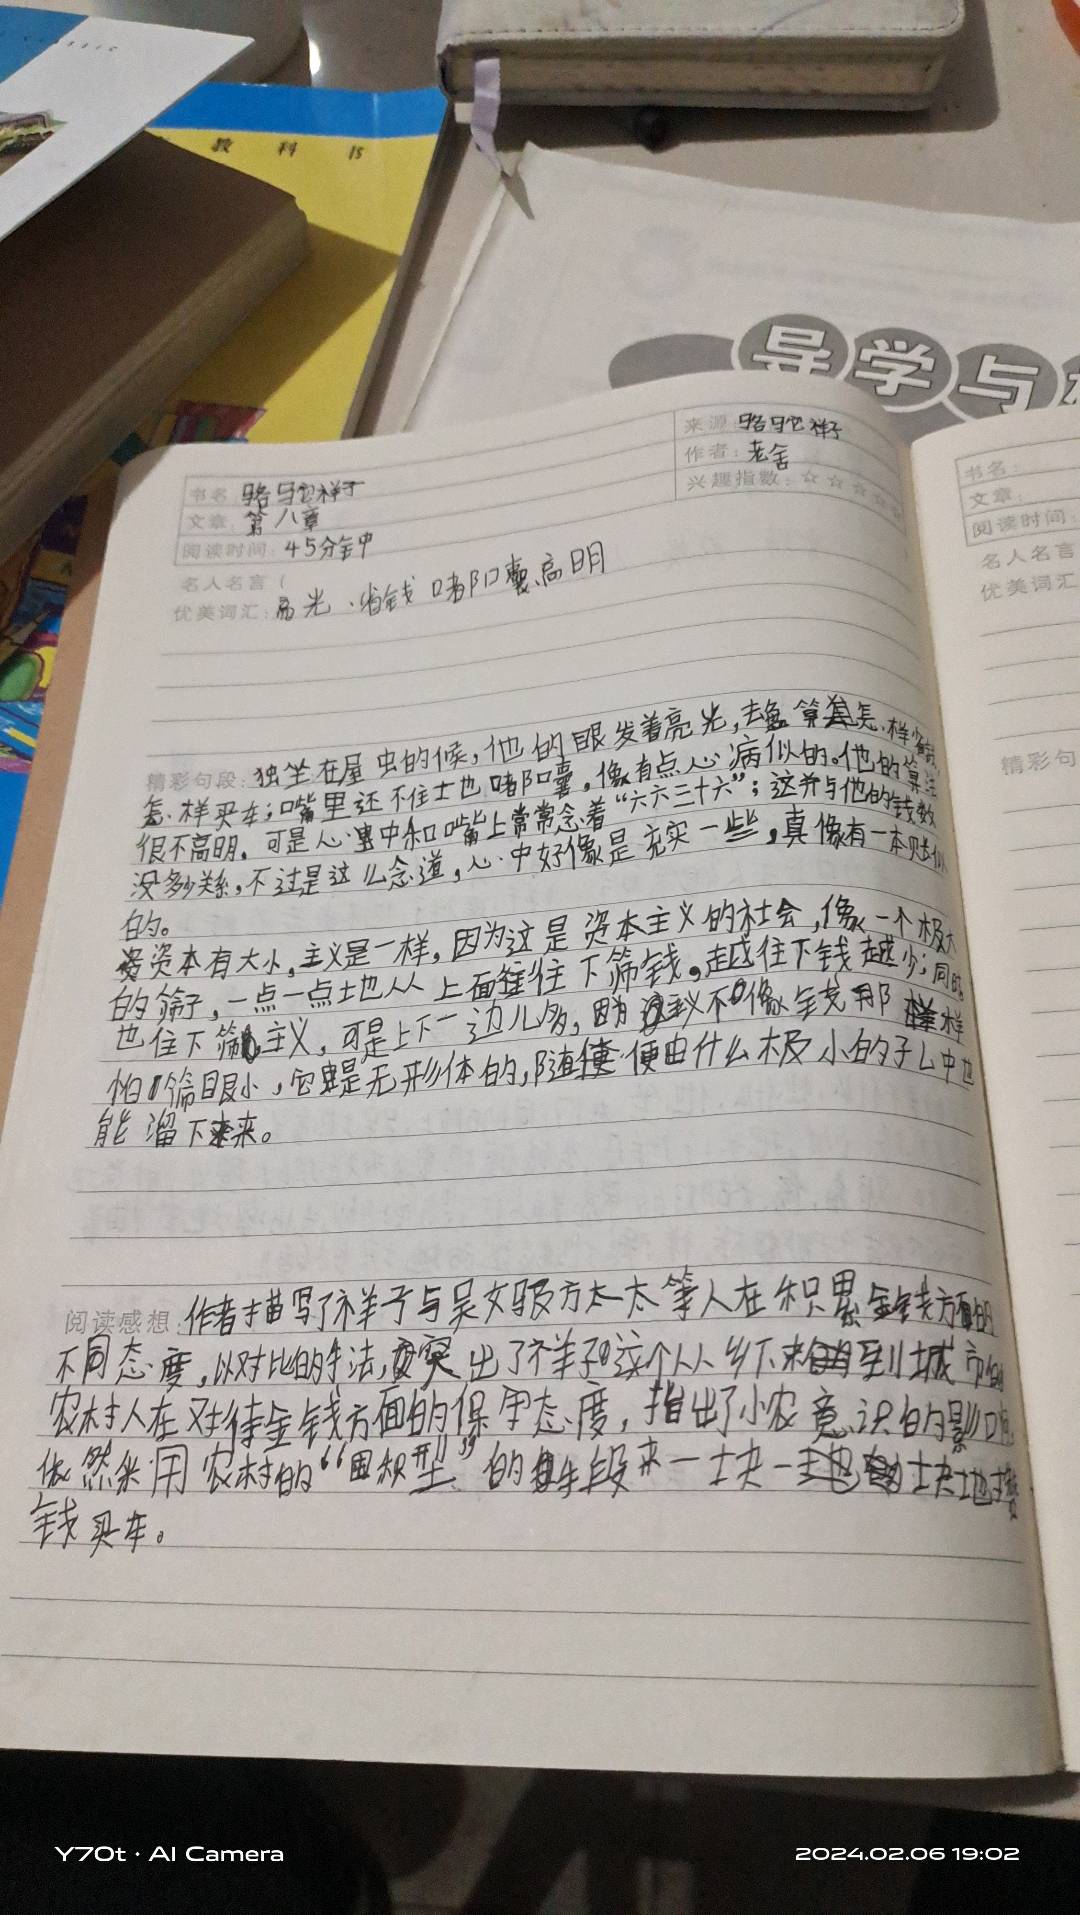 教科书
导学与
来源：骆驼祥子
书名：骆驼祥子
作者：老舍
文章：第八章
兴趣指数：☆☆☆☆
阅读时间：45分钟
名人名言
优美词汇：亮光、省钱 嘟囔、高明
精彩句段：独坐在屋虫的候，他的眼发着亮光，去 算 怎样省钱，
怎样买车；嘴里还不住地嘟囔，像有点心病似的。他的算法
很不高明，可是心中和嘴上常常念着“六六三十六”；这并与他的钱数
没多少关系，不过是这么念道，心中好像是充实一些，真像有一本账似
的。
资本有大小，主义是一样，因为这是资本主义的社会，像一个极大
的筛子，一点一点地从上面往下筛钱，越往下钱越少；同时
也往下筛主义，可是上下一边儿多，因为主义不像钱那样
怕筛眼小，它是无形体的，随便由什么极小的孔中也
能溜下来。
阅读感想：作者描写了祥子与吴女驭方太太等人在积累金钱方面的
不同态度，以对比的手法，突出了祥子这个从乡下来到城市的
农村人在对待金钱方面的保守态度，指出了小农意识的影响，
依然用农村的“囤积型”的手段来一块一块地攒
钱买车。
书名：
文章：
阅读时间：
名人名言
优美词汇：
精彩句
Y70t · AI Camera
2024.02.06 19:02